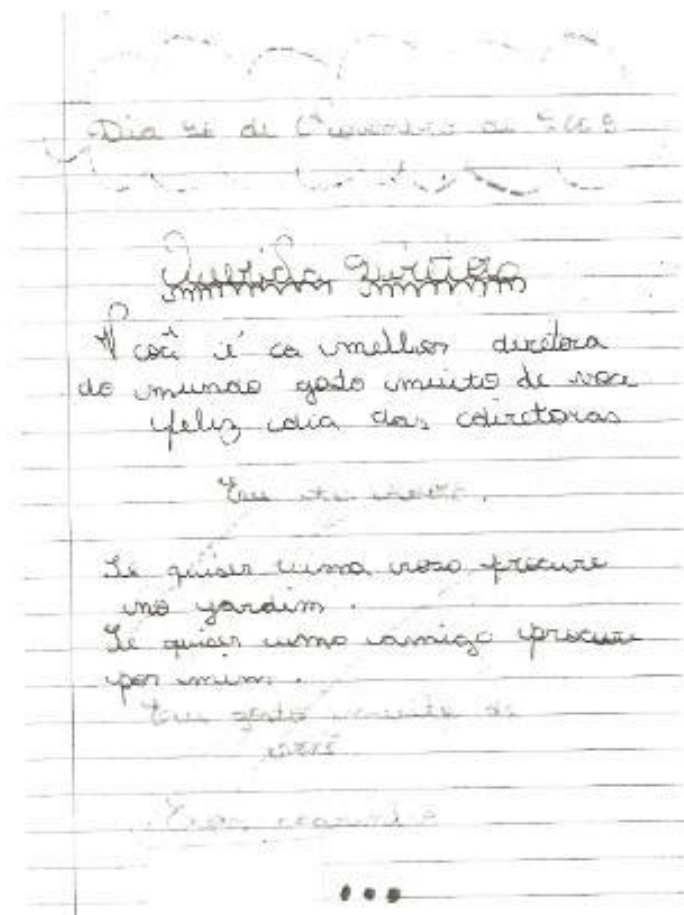 Dia de de
Querida
Você é a melhor diretora
do mundo gosto muito de voce
feliz dia das diretoras
Eu
Se quiser uma roza procure
no jardim.
Se quiser uma amiga procure
por mim.
Eu gosto muito de
você
...